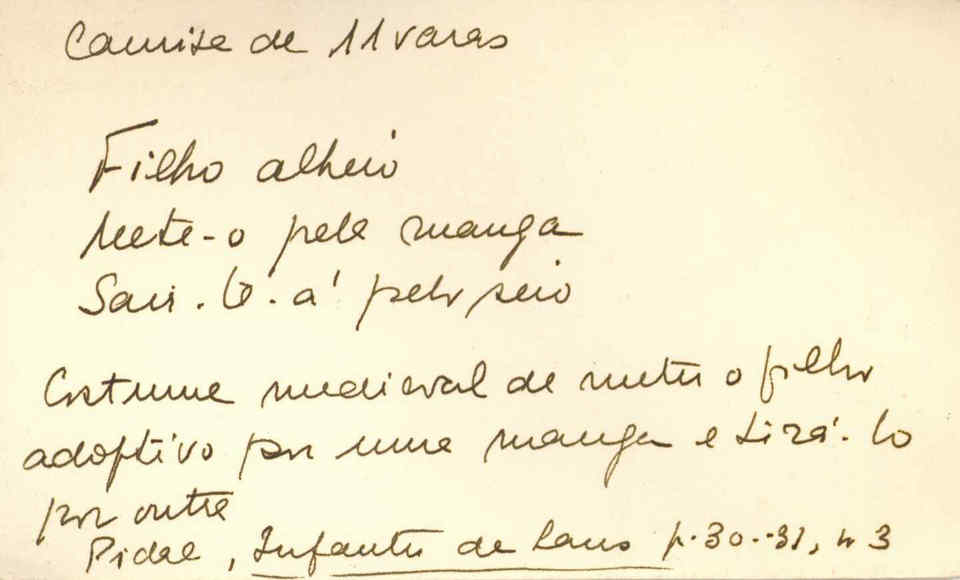 Camisa de 11 varas
Filho alheio
Mete-o pela manga
Sair-te-á pelo seio
Costume medieval de meter o filho
adoptivo por uma manga e tirá-lo
por outra
Pidal, Infantes de Lara p. 30-31, n 3